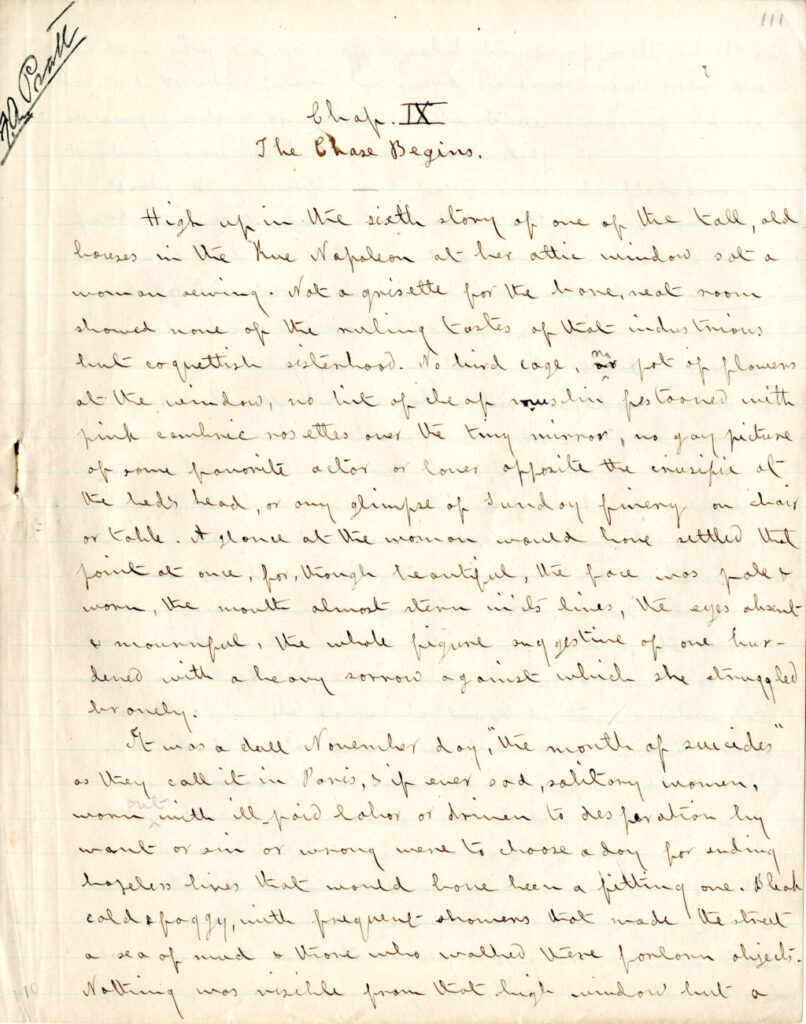 111
Pratt
Chap. IX
The Chase Begins.
High up in the sixth story of one of the tall, old
houses in the Rue Napoleon at her attic window sat a
woman sewing. Not a grisette for the bare, neat room
showed none of the ruling tastes of that industrious
but coquettish sisterhood. No bird cage, no pot of flowers
at the window, no bit of cheap muslin festooned with
pink cambric rosettes over the tiny mirror, no gay picture
of some favorite actor or lover opposite the crusifix at
the bed's head, or any glimpse of Sunday finery on chair
or table. A glance at the woman would have settled that
point at once, for, though beautiful, the face was pale &
worn, the mouth almost stern in its lines, the eyes absent
& mournful, the whole figure suggestive of one bur-
dened with a heavy sorrow against which she struggled
bravely.
It was a dull November day, "the month of suicides"
as they call it in Paris, & if ever sad, solitary women,
worn out with ill-paid labor or driven to desperation by
want or sin or wrong were to choose a day for ending
hopeless lives that would have been a fitting one. Bleak
cold & foggy, with frequent showers that made the street
a sea of mud & those who walked there forlorn objects.
Nothing was visible from that high window but a